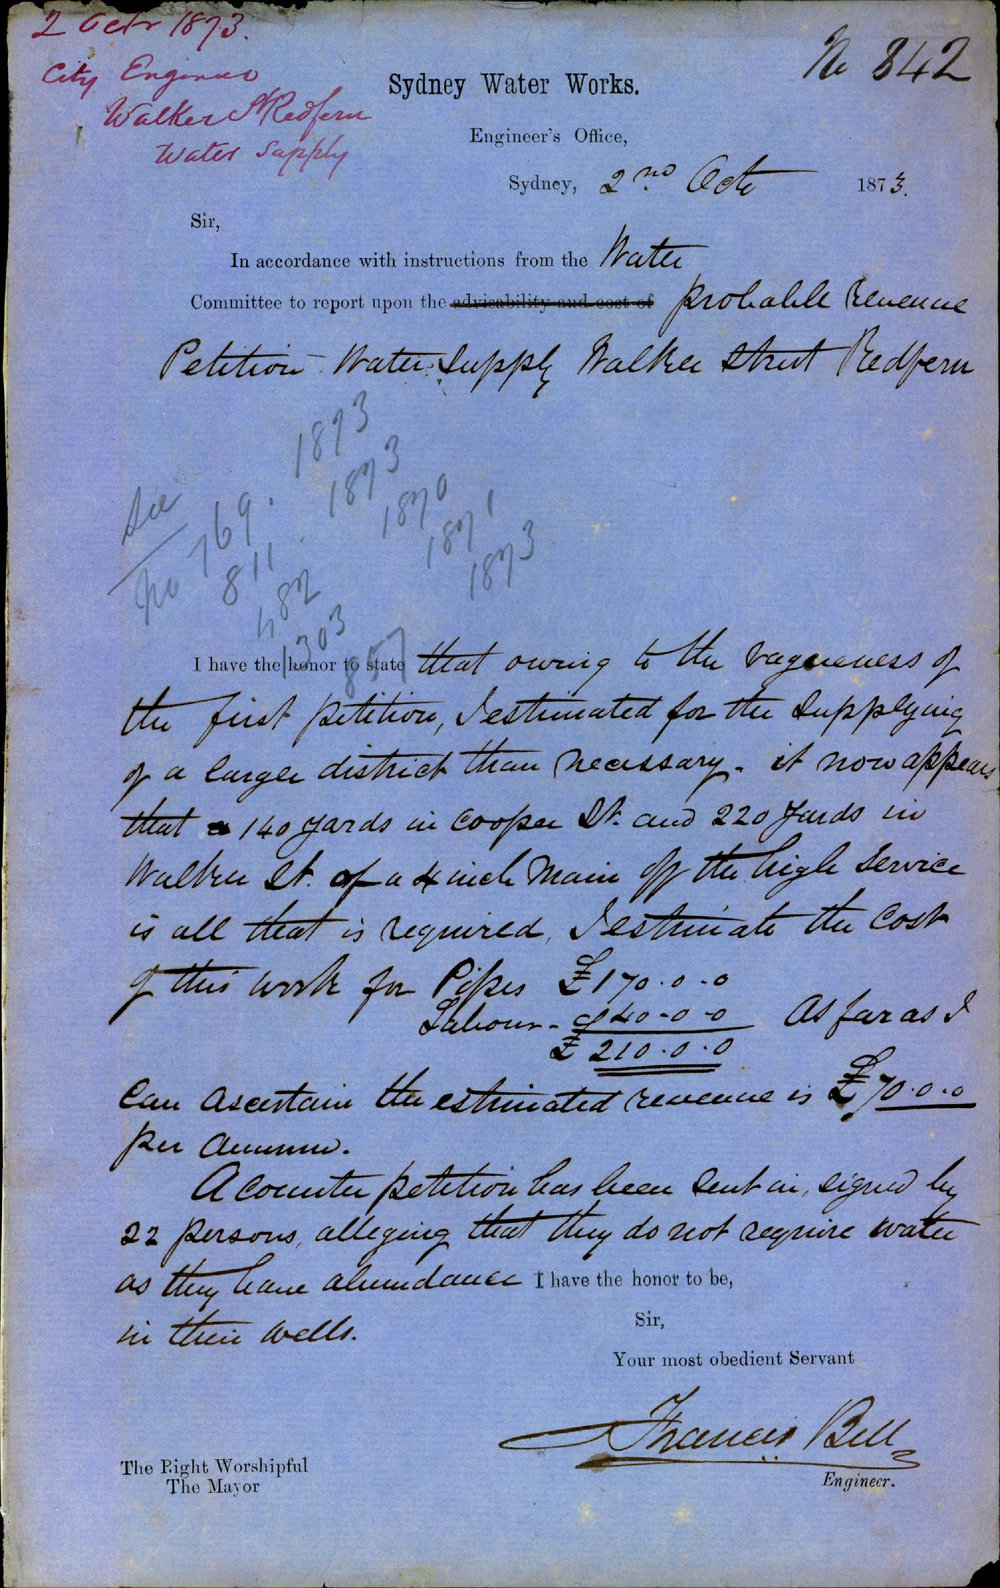 2 Octr 1873.
City Engineer
Walker St Redfern
Water Supply
No 842
Sydney Water Works.
Engineer's Office,
Sydney, 2nd Octr 1873.
Sir,
In accordance with instructions from the Water
Committee to report upon the advisability and cost of probable revenue
Petition Water Supply Walker Street Redfern
See
No 769. 1873
811 1873
482 1870
1303 1871
857 1873
I have the honor to state that owing to the vagueness of
the first petition, I estimated for the supplying
of a larger district than necessary - it now appears
that a 140 yards in Cooper St. and 220 yards in
Walker St. of a 4 inch Main off the high Service
is all that is required, I estimate the cost
of this work for Pipes £170.0.0
Labour - £40-0-0 As far as I
£210.0.0
can ascertain the estimated revenue is £70.0.0
per Annum.
A counter petition has been sent in, signed by
22 persons, alleging that they do not require water
as they have abundance I have the honor to be,
in their wells.
Sir,
Your most obedient Servant
Francis Bell
Engineer.
The Right Worshipful
The Mayor